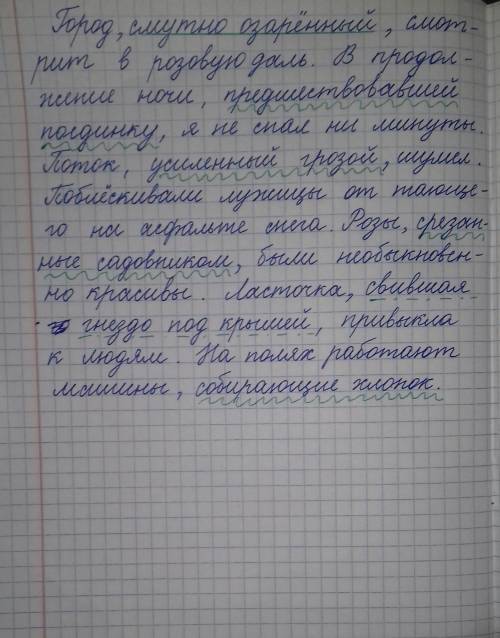 Город, смутно озарённый, смот-
рит в розовую даль. В продол-
жение ночи, предшествовавшей
поединку, я не спал ни минуты.
Поток, усиленный грозой, шумел.
Поблёскивали лужицы от тающе-
го на асфальте снега. Розы, срезан-
ные садовником, были необыкновен-
но красивы. Ласточка, свившая
гнездо под крышей, привыкла
к людям. На полях работают
машины, собирающие хлопок.